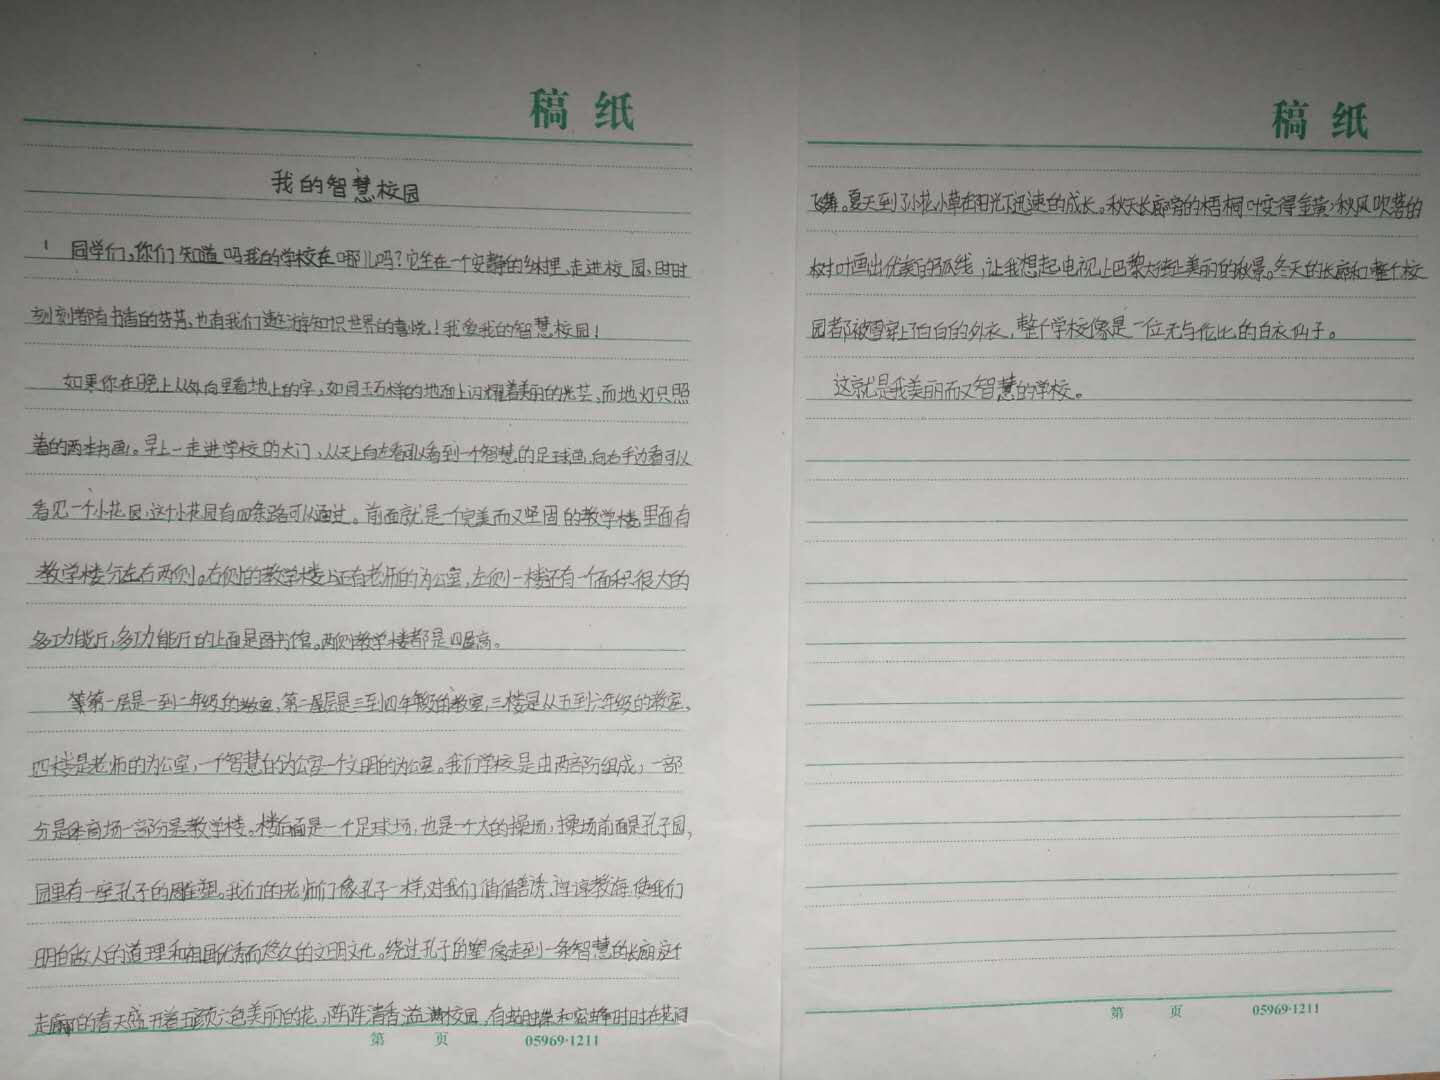 稿 纸
我的智慧校园
同学们,你们知道吗我的学校在哪儿吗?它坐在一个安静的乡村里,走进校园,时时
刻刻都有书香的芬芳,也有我们遨游知识世界的喜悦!我爱我的智慧校园!
如果你在晚上从外向里看地上的字,如同玉石样的地面上闪耀着美丽的光芒,而地灯只照
着的两本书画。早上一走进学校的大门,从天上向左看可以看到一个智慧的足球画,向右手边看可以
看见一个小花园,这个小花园有四条路可以通过。前面就是一个完美而又坚固的教学楼,里面有
教学楼分左右两侧。右侧的教学楼上还有老师的办公室,左侧一楼还有一个面积很大的
多功能厅,多功能厅的上面是图书馆。两侧教学楼都是四层高。
第一层是一到二年级的教室,第二层是三至四年级的教室,三楼是从五到六年级的教室,
四楼是老师的办公室,一个智慧的办公室一个文明的办公室。我们学校是由两部分组成,一部
分是体育场一部分是教学楼。楼后面是一个足球场,也是一个大的操场,操场前面是孔子园,
园里有一座孔子的雕塑。我们的老师们像孔子一样,对我们循循善诱、谆谆教诲,使我们
明白做人的道理和祖国优秀而悠久的文明文化。绕过孔子的塑像走到一条智慧的长廊,这个
走廊的春天盛开着五颜六色美丽的花,阵阵清香溢满校园,有蝴蝶和蜜蜂时时在花间
第 页 05969·1211
稿 纸
飞舞。夏天到了小花小草在阳光下迅速的成长。秋天长廊旁的梧桐叶变得金黄,秋风吹落的
树叶画出优美的弧线,让我想起电视上巴黎大街上美丽的秋景。冬天的长廊和整个校
园都被雪穿上了白白的外衣,整个学校像是一位无与伦比的白衣仙子。
这就是我美丽而又智慧的学校。
第 页 05969·1211